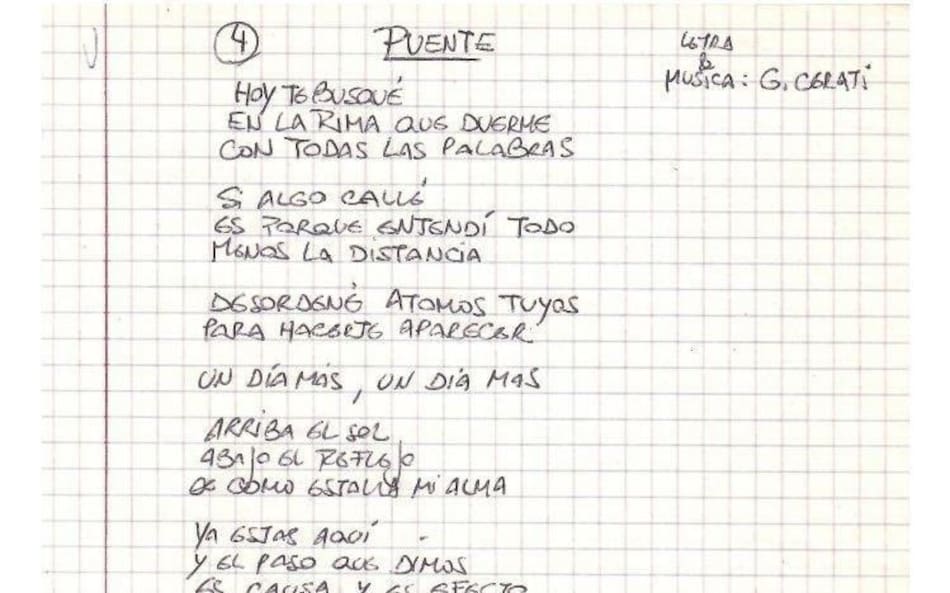 4 PUENTE
LETRA
&
MUSICA: G. CERATI
HOY TE BUSQUÉ
EN LA RIMA QUE DUERME
CON TODAS LAS PALABRAS
SI ALGO CALLÉ
ES PORQUE ENTENDÍ TODO
MENOS LA DISTANCIA
DESORDENÉ ATOMOS TUYOS
PARA HACERTE APARECER
UN DÍA MÁS, UN DÍA MAS
ARRIBA EL SOL
ABAJO EL REFLEJO
DE COMO ESTALLA MI ALMA
YA ESTAS AQUÍ
Y EL PASO QUE DIMOS
ES CAUSA Y ES EFECTO